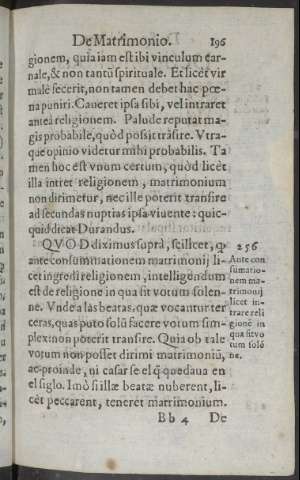 De Matrimonio. 196
gionem, quia iam est ibi vinculum car-
nale, & non tantũ spirituale. Et licèt vir
malè fecerit, non tamen debet hac pœ-
na puniri. Caueret ipsa sibi, vel intraret
antea religionem. Palude reputat ma-
gis probabile, quòd possit trãsire. Vtra-
que opinio videtur mihi probabilis. Ta
men hoc est vnum certum, quòd licèt
illa intret religionem, matrimonium
non dirimetur, nec ille poterit transire
ad secundas nuptias ipsa viuente: quic-
quid dicat Durandus.
QVOD diximus suprà, scilicet, q̃
ante consummationem matrimonij li-
cet ingredi religionem, intelligendum
est de religione in qua sit votum solen-
ne. Vnde a las beatas, quæ vocantur ter
ceras, quas puto solũ facere votum sim-
plex: non poterit transire. Quia ob tale
votum non posset dirimi matrimoniũ,
ac proinde, ni casarse el q̃ quedaua en
el siglo. Imò si illæ beatæ nuberent, li-
cèt peccarent, teneret matrimonium.
256
Ante con
sumatio-
nem ma-
trimonij
licet in-
trare reli
gionẽ in
qua sit vo
tum solẽ
ne.
Bb 4 De